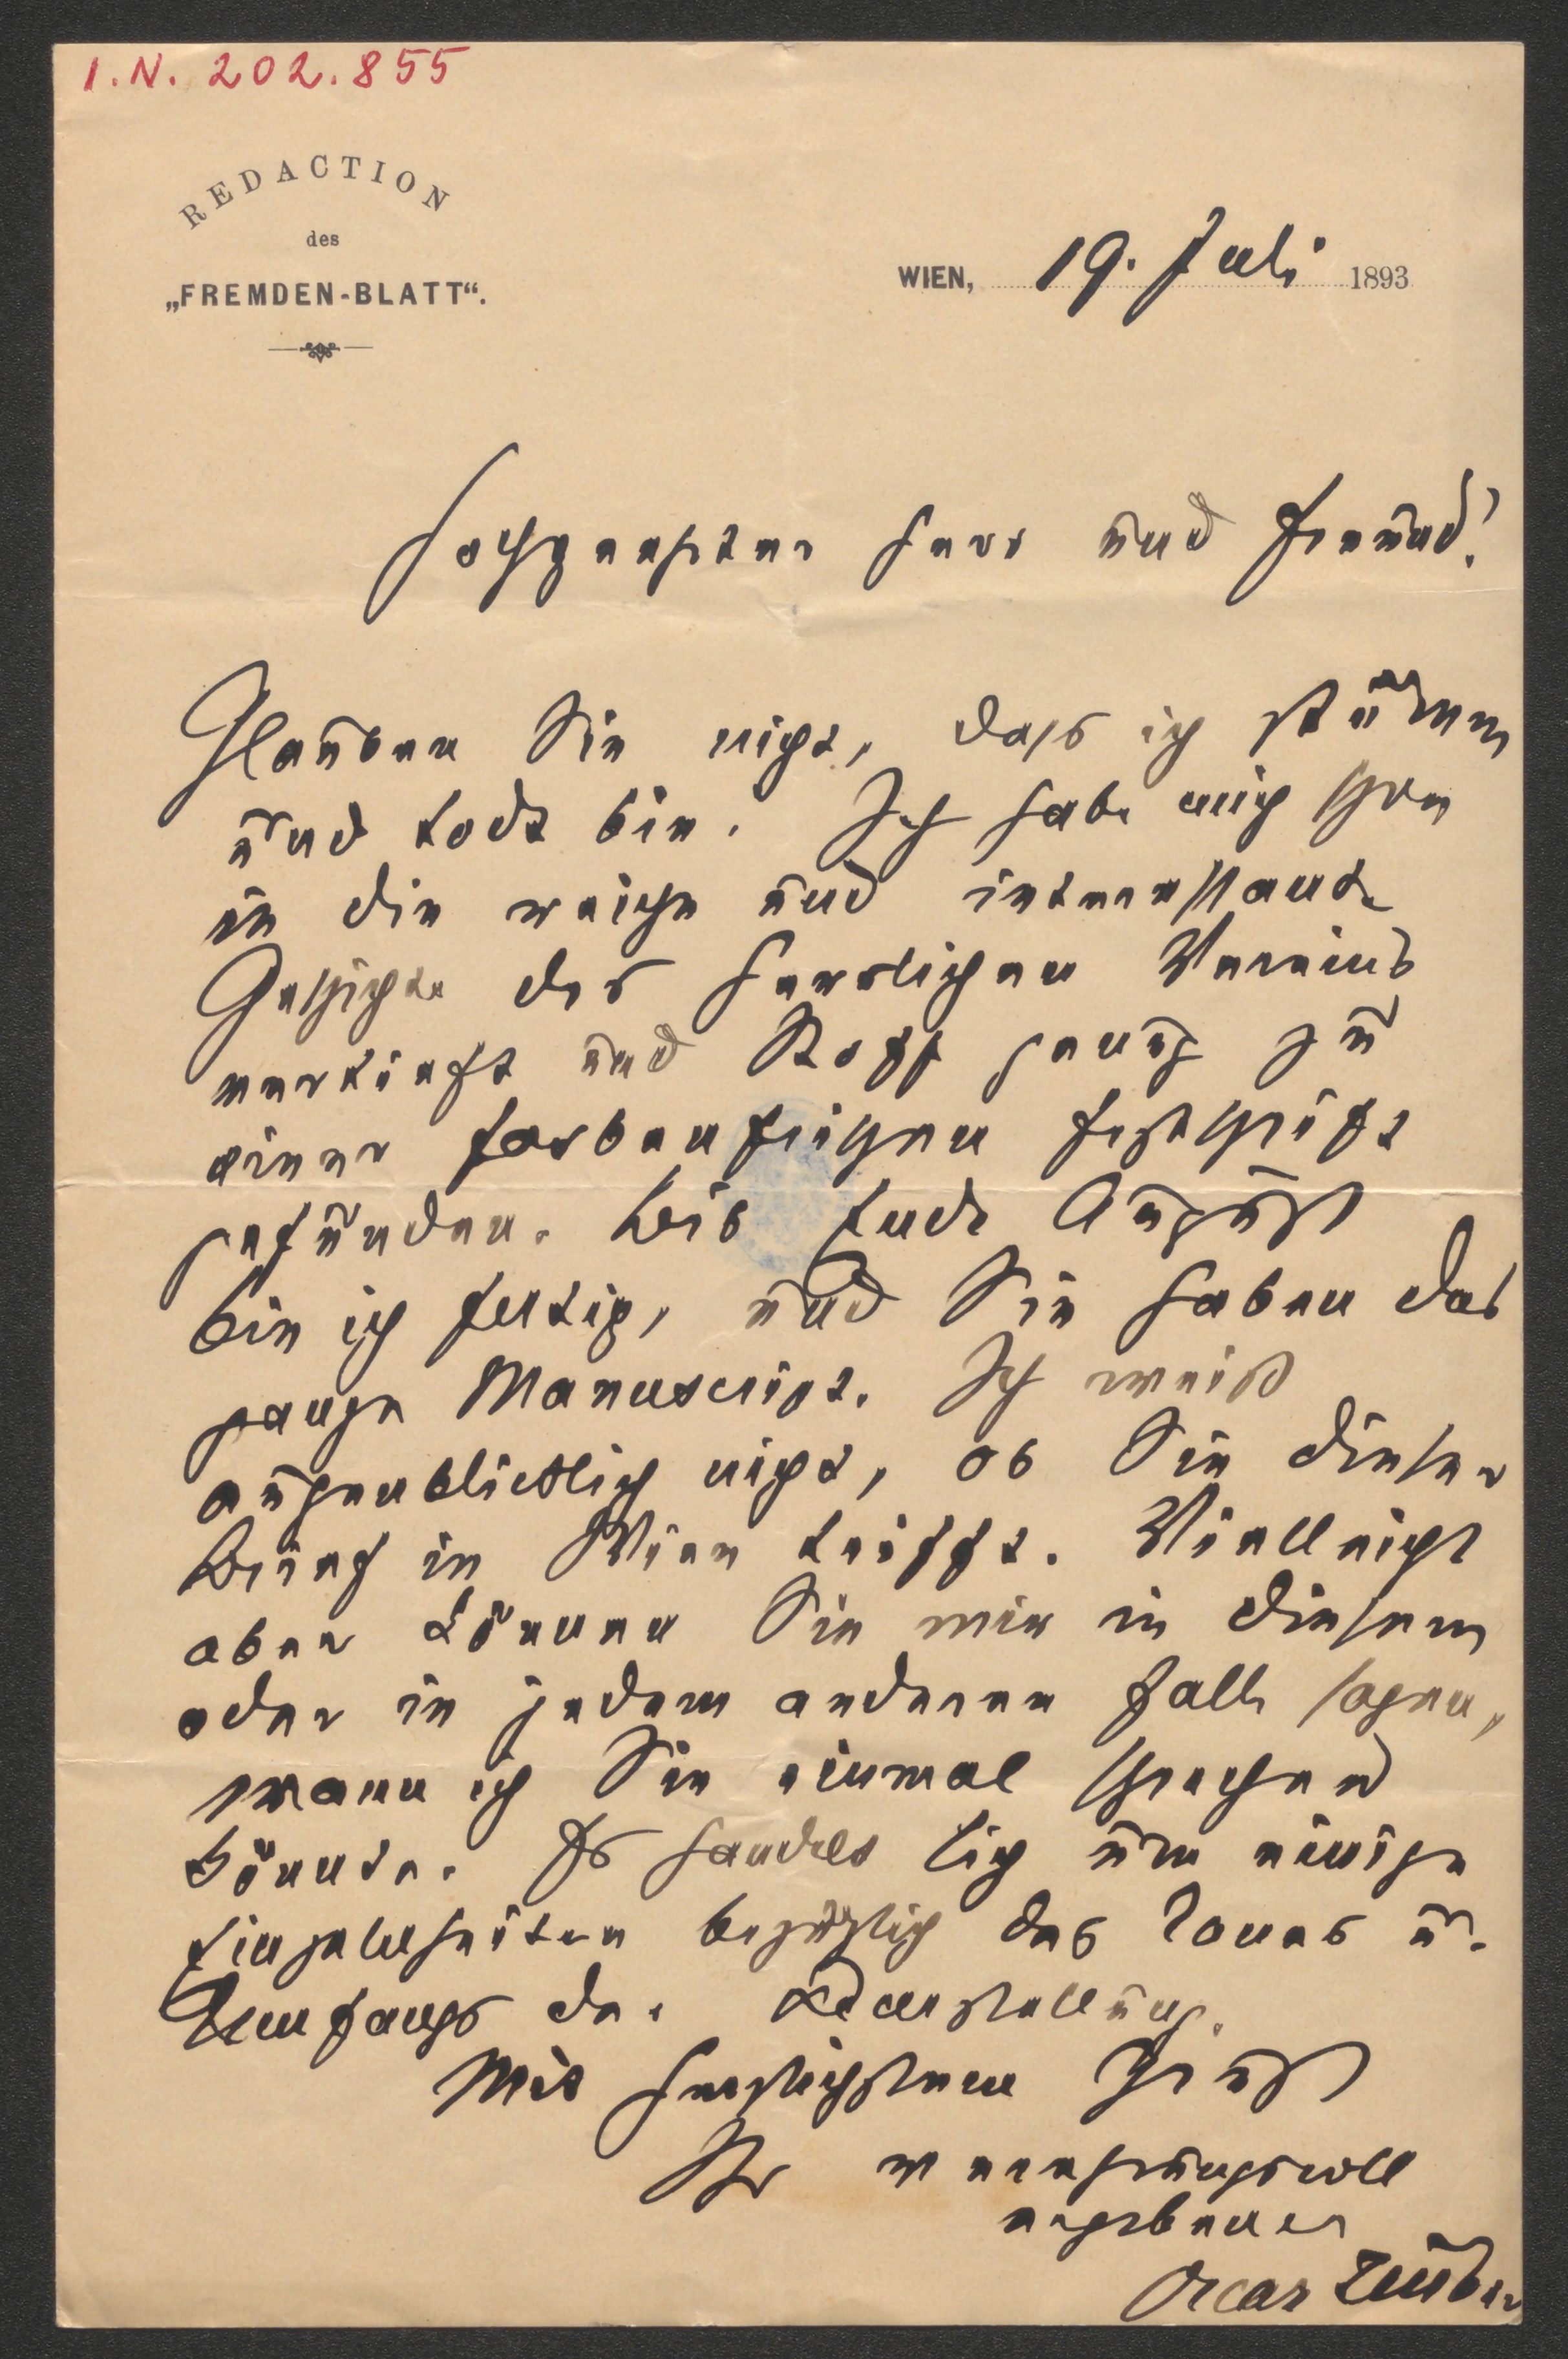 I.N. 202.855
REDACTION
des
„FREMDEN-BLATT“.
WIEN, 19. Juli 1893
Hochgeehrter Herr und Freund!
Glauben Sie nicht, daß ich stumm
und todt bin. Ich habe mich schon
in die reiche und interessante
Geschichte des Vereins
vertieft und Stoff genug zu
einer farbenfrischen Festschrift
gefunden. Bis Ende August
bin ich fertig, und Sie haben das
ganze Manuscript. Ich weiß
augenblicklich nicht, ob Sie dieser
Brief in Wien trifft. Vielleicht
aber können Sie mir in diesem
oder in jedem anderen Falle sagen,
wann ich Sie einmal sprechen
könnte. Es handelt sich um einige
Einzelnheiten bezüglich des Tones u.
Umfangs der Darstellung.
Mit herzlichstem Gruß
Ihr verehrungsvoll
ergebener
Oscar Teuber